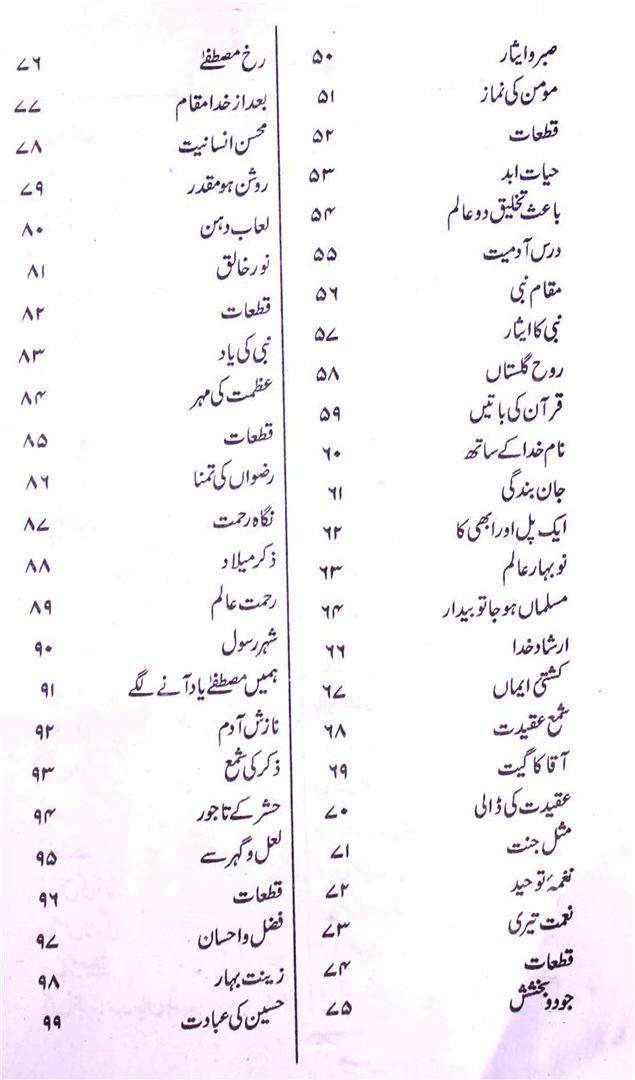 صبر و ایثار ۵۰
مومن کی نماز ۵۱
قطعات ۵۲
حیات ابد ۵۳
باعث تخلیق دو عالم ۵۴
درس آدمیت ۵۵
مقام نبی ۵۶
نبی کا ایثار ۵۷
روح گلستاں ۵۸
قرآن کی باتیں ۵۹
نام خدا کے ساتھ ۶۰
جان بندگی ۶۱
ایک پل اور ابھی کا ۶۲
نو بہار عالم ۶۳
مسلماں ہو جا تو بیدار ۶۴
ارشاد خدا ۶۶
کشتیٔ ایماں ۶۷
شمع عقیدت ۶۸
آقا کا گیت ۶۹
عقیدت کی ڈالی ۷۰
مثل جنت ۷۱
نغمۂ توحید ۷۲
نعمت تیری ۷۳
قطعات ۷۴
جود و بخشش ۷۵
رخ مصطفےٰ ۷۶
بعد از خدا مقام ۷۷
محسن انسانیت ۷۸
روشن ہو مقدر ۷۹
لعاب دہن ۸۰
نور خالق ۸۱
قطعات ۸۲
نبی کی یاد ۸۳
عظمت کی مہر ۸۴
قطعات ۸۵
رضواں کی تمنا ۸۶
نگاہ رحمت ۸۷
ذکر میلاد ۸۸
رحمت عالم ۸۹
شہر رسول ۹۰
ہمیں مصطفےٰ یاد آنے لگے ۹۱
نازش آدم ۹۲
ذکر کی شمع ۹۳
حشر کے تاجور ۹۴
لعل و گہر سے ۹۵
قطعات ۹۶
فضل و احسان ۹۷
زینت بہار ۹۸
حسین کی عبادت ۹۹